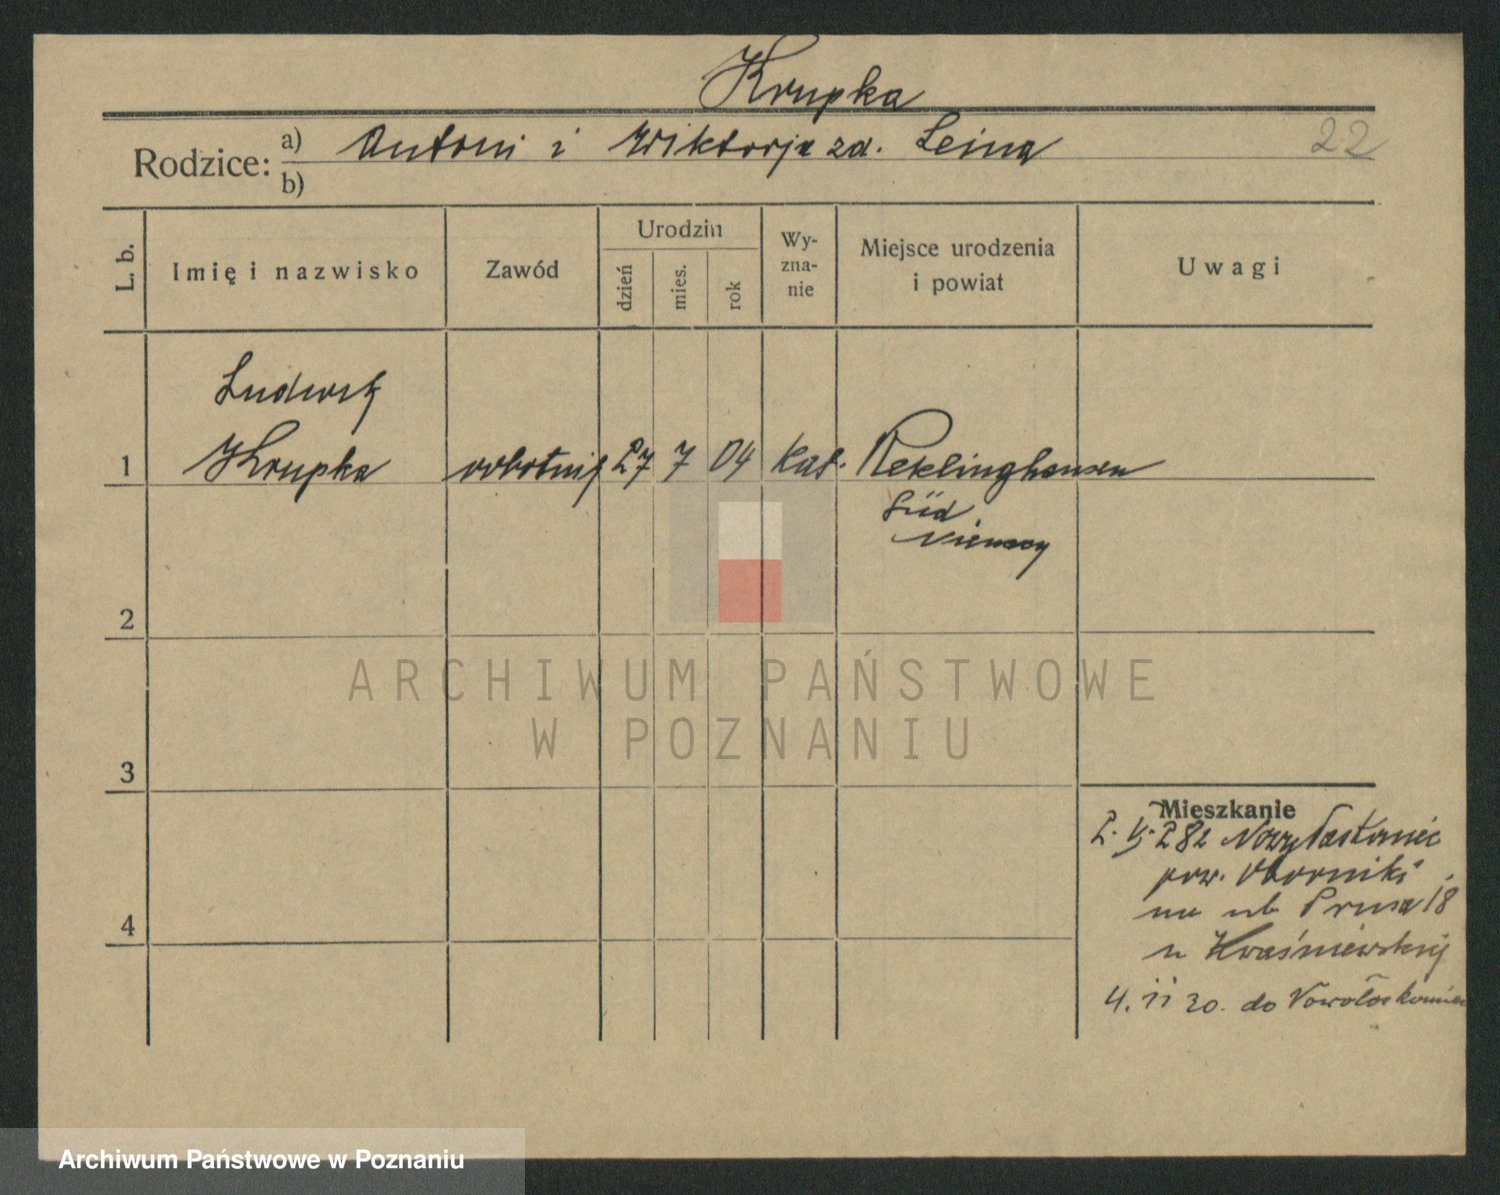 Krupka
Rodzice: a) Antoni i Wiktorja zd. Leina 22
b)
L. b. Imię i nazwisko Zawód Urodzin dzień mies. rok Wy-zna-nie Miejsce urodzenia i powiat Uwagi
Ludwik
1 Krupka robotnik 27 7 04 kat. Reklinghausen
Süd
Niemcy
2
ARCHIWUM PAŃSTWOWE
W POZNANIU
3
Mieszkanie
2. V. 282 Nowy
pow. Oborniki
na ul. Prusa 18
u Kraśniewskiej
4. II 30. do
4
Archiwum Państwowe w Poznaniu